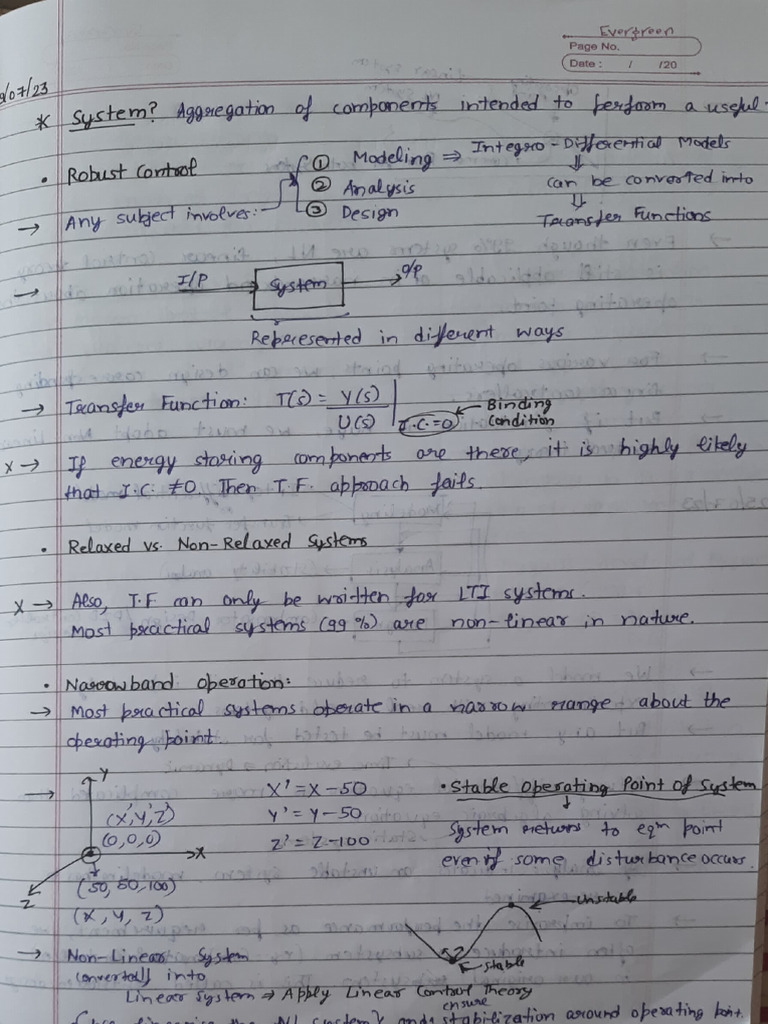 Evergreen
Page No.
Date : / /20
/07/23
* System? Aggregation of components intended to perform a useful
• Robust Control
→ Any subject involves:
① Modeling ⇒ Integro-Differential Models
② Analysis
③ Design
⇓
can be converted into
⇓
Transfer Functions
→ I/P → System → O/P
Represented in different ways
→ Transfer Function: T(s) = Y(s)/U(s) | I.C.=0 ← Binding Condition
x → If energy storing components are there it is highly likely
that I.C. ≠0. Then T.F. approach fails.
• Relaxed vs. Non-Relaxed Systems
x → Also, T.F can only be written for LTI systems.
Most practical systems (99%) are non-linear in nature.
• Narrowband operation:
→ Most practical systems operate in a narrow range about the
operating point.
→ Y
(X',Y',Z')
(0,0,0)
→X
Z
(50,50,100)
(X, Y, Z)
X' = X-50
Y' = Y-50
Z' = Z-100
• Stable Operating Point of System
↓
System returns to eqm point
even if some disturbance occurs.
unstable
stable
→ Non-Linear System
converted into
Linear System ⇒ Apply Linear Control Theory
ensure
the system} and stabilization around operating point.